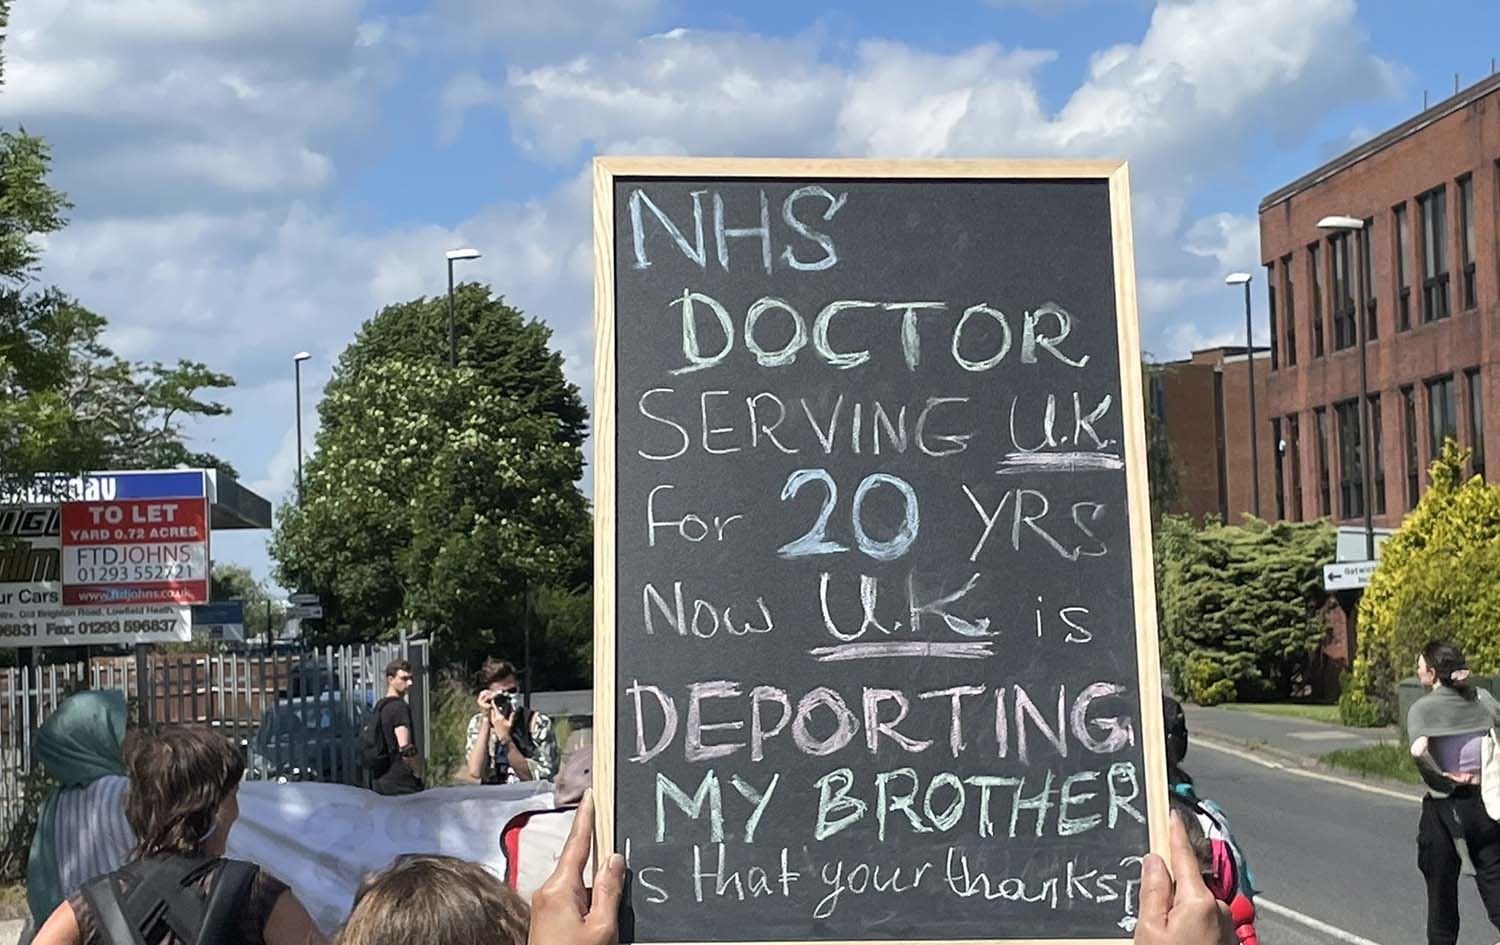 NHS
DOCTOR
SERVING U.K.
For 20 YRS
Now U.K. is
DEPORTING
MY BROTHER
Is that your thanks?
TO LET
YARD 0.72 ACRES
FTDJOHNS
01293 552721
www.ftdjohns.co.uk
ur Cars
Old Brighton Road, Lowfield Heath,
96831 Fax: 01293 596837